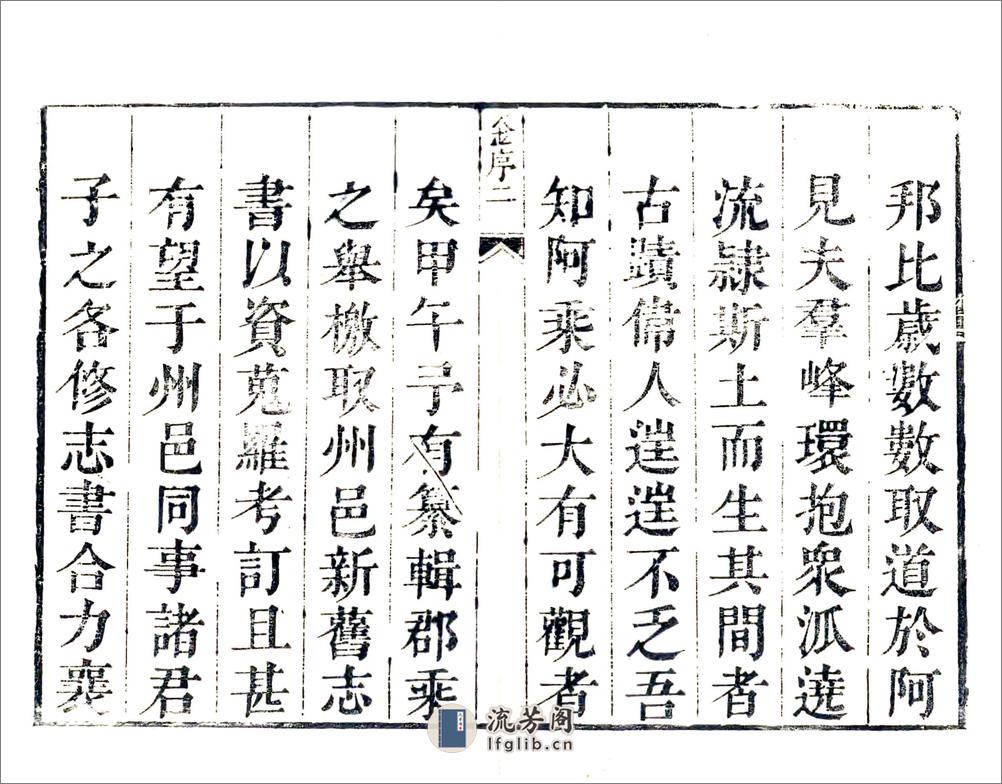 邦比歲數數取道於阿
見夫羣峰環抱衆派澆
流隷斯土而生其間者
古蹟偉人逞逞不乏吾
知阿乘必大有可觀者
金序二
矣甲午予有纂輯郡乘
之舉檄取州邑新舊志
書以資蒐羅考訂且甚
有望于州邑同事諸君
子之各修志書合力襄
流芳阁
lfglib.cn